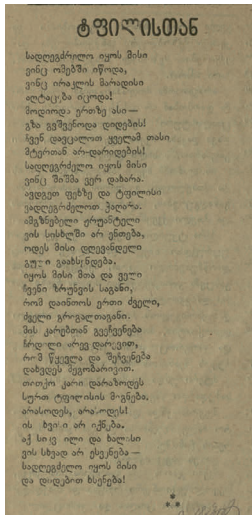 ტფილისთან
სადღეგრძელო იყოს მისი
ვინც ომებში იწოდა,
ვინც ირაკლის მარადისი
აღტაცება იცოდა!
მოდიოდა ერთზე ასი —
გზა გვშვენოდა დიდების!
ჩვენ დავცალოთ ყველამ თასი
მტერთან არ-დარიდების!
სადღეგრძელო იყოს მისი
ვინც შიშმა ვერ დახარა.
ავდგეთ ფეხზე და ტფილისი
ვადღეგრძელოთ პატარა.
ამგზნებელი ჟრუანტელი
ვის სისხლში არ ენთება,
ოდეს მისი დღევანდელი
გული გაახსენდება,
იყოს მისი მთა და ველი
ჩვენი ზრუნვის საგანი,
რომ დაინთოს ერთი ძველი,
ძველი გრიგალთაგანი.
მის კარებთან გვეჩვენება
ჩრდილი არევ-დარევით,
რომ წყევლა და შეჩვენება
დახვდეს მეგობარივით.
თითქო კარი დარაზოდეს
სურთ ტფილისის მიგნება.
არასოდეს, არასოდეს!
ის ხვისი არ იქნება.
აქ სიცილი და ხალისი
ვის სხვად არ ესვენება —
სადღეგძელო იყოს მისი
და დიდებით ხსენება!